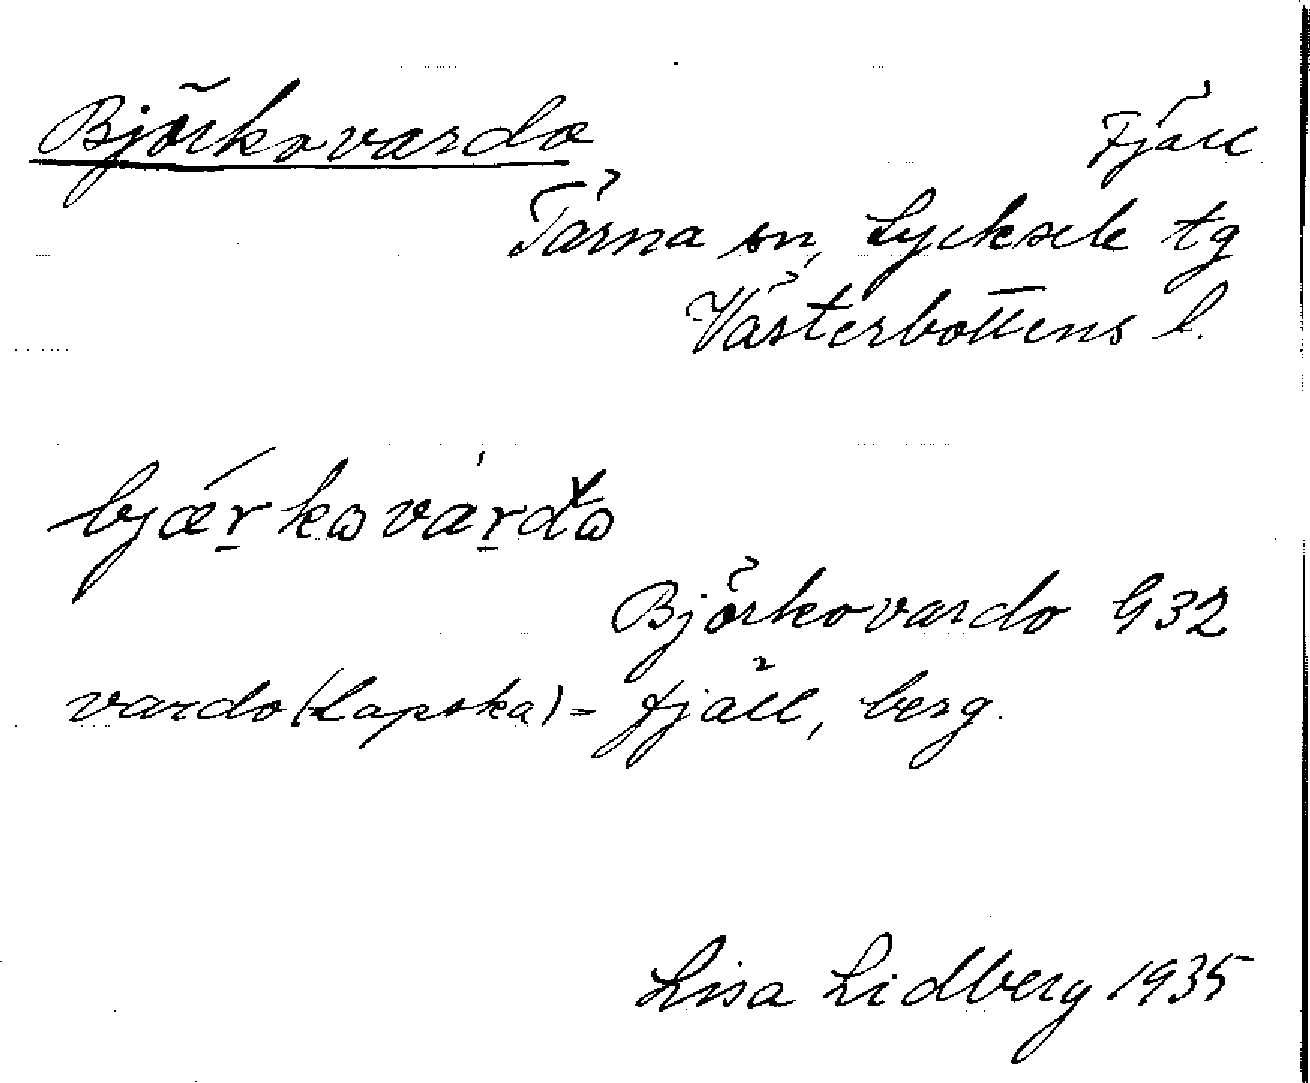 Björkovardo Fjäll
Tärna sn, Lycksele tg
Västerbottens l.
bjǽr̠kωvár̠dω
Björkovardo G32
vardo (Lapska) = fjäll, berg.
Lisa Lidberg 1935